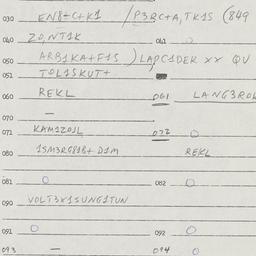 030 EN8+C+K1 /P3RC+A, TK1S (849
040 Z0,NT1K 041
050 ARB1KA+F1S ) LAPC1DEK XX QV
051 TOL1SKUT+
060 REKL 061 LANG3ROK
070 —
071 KAM1Z0JL 072 0
080 1SM3RG818+ D1M REKL
081 0 082 0
090 VOLT3X1SUNG1TUN
091 0 092 0
093 — 094 0